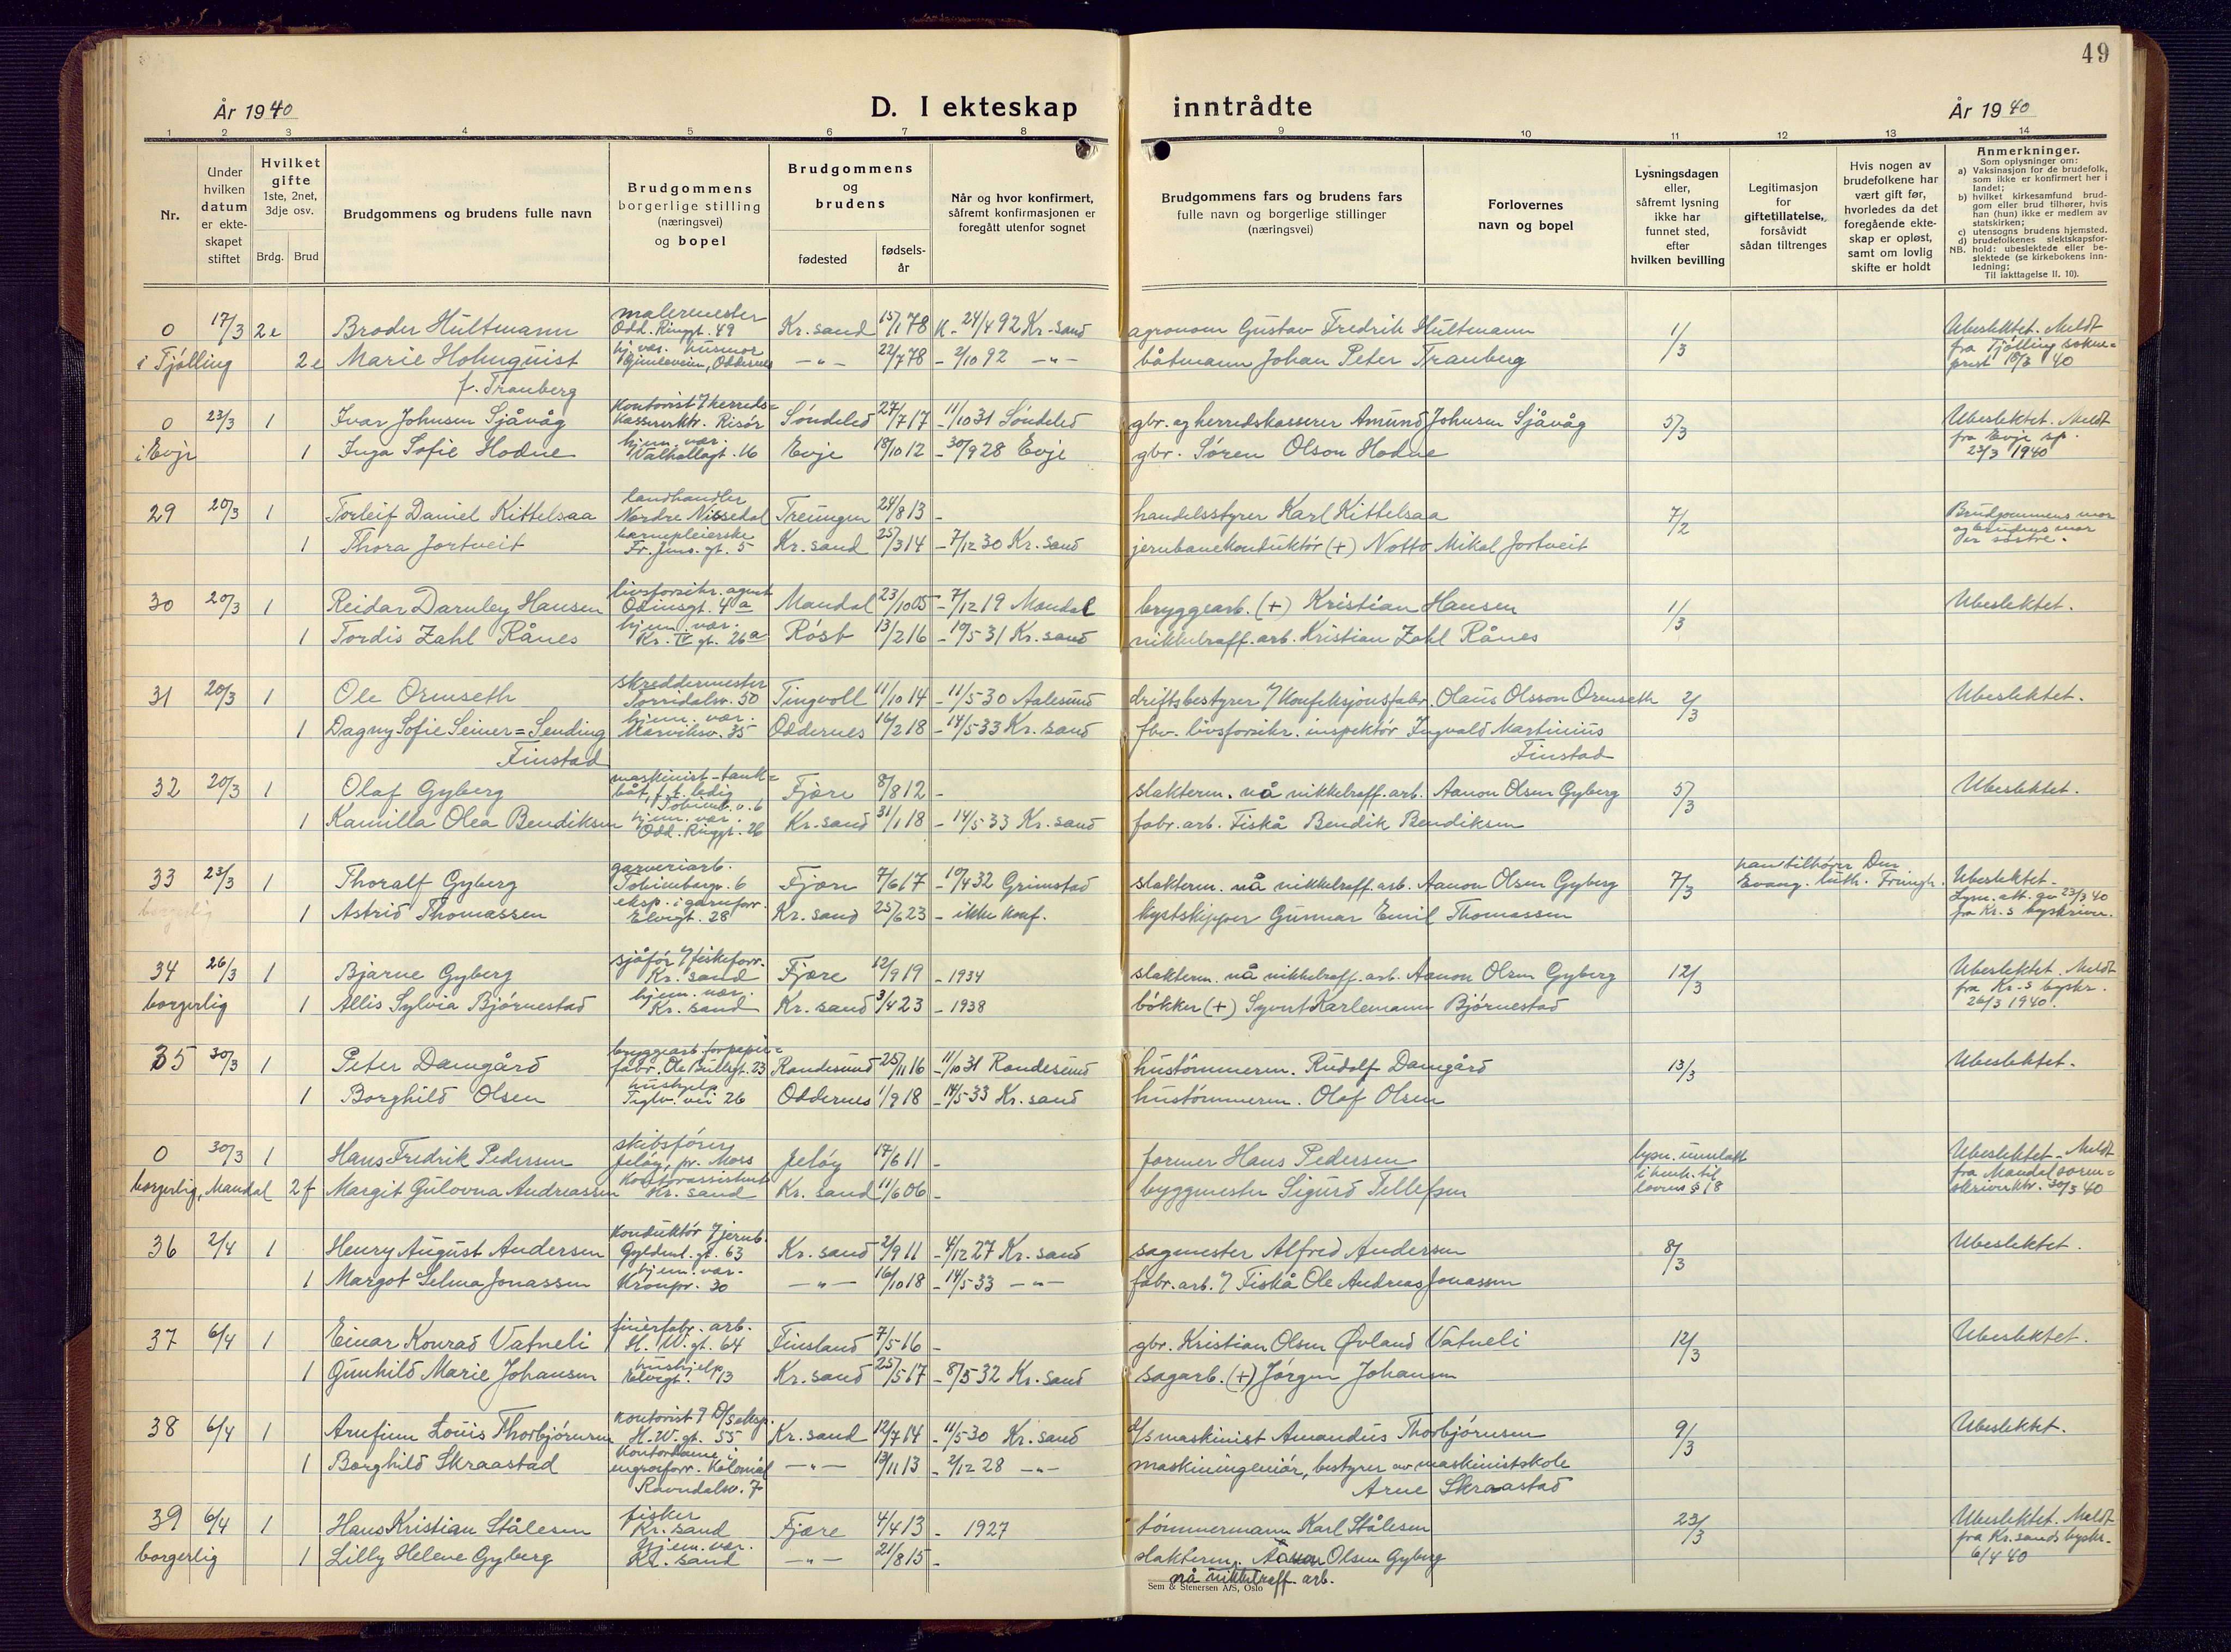 49
År 1940
D. I ekteskap inntrådte
År 1940
1 2 3 4 5 6 7 8 9 10 11 12 13 14
Nr.
Under hvilken datum er ekte-skapet stiftet
Hvilket gifte 1ste, 2net, 3dje osv.
Brdg. Brud
Brudgommens og brudens fulle navn
Brudgommens borgerlige stilling (næringsvei) og bopel
Brudgommens og brudens
fødested
fødsels-år
Når og hvor konfirmert, såfremt konfirmasjonen er foregått utenfor sognet
Brudgommens fars og brudens fars fulle navn og borgerlige stillinger (næringsvei)
Forlovernes navn og bopel
Lysningsdagen eller, såfremt lysning ikke har funnet sted, efter hvilken bevilling
Legitimasjon for giftetillatelse, forsåvidt sådan tiltrenges
Hvis nogen av brudefolkene har vært gift før, hvorledes da det foregående ekte-skap er opløst, samt om lovlig skifte er holdt
Anmerkninger.
Som oplysninger om:
a) Vaksinasjon for de brudefolk, som ikke er konfirmert her i landet;
b) hvilket kirkesamfund brud-gom eller brud tilhører, hvis han (hun) ikke er medlem av statskirken;
c) utensogns brudens hjemsted.
d) brudefolkenes slektskapsfor-hold: ubeslektede eller be-slektede (se kirkebokens inn-ledning;
NB.
Til iakttagelse II. 10).
0 17/3 2e Broder Hultmann malermester Odd. Ringgt. 49 Kr.sand 15/1 78 K - 24/4 92 Kr.sand agronom Gustav Fredrik Hultmann 1/3 Ubeslektet. Meldt
i Tjølling 2e Marie Holmquist f. Tranberg hj. var. husmor Oddernes -"- 22/7 78 - 2/10 92 -"- båtmann Johan Peter Tranberg fra Tjølling sokne=prest 18/3 40
0 23/3 1 Ivar Johnsen Sjåvåg Kontorist v/ herreds=kassererktr. Risør Søndeled 27/7 17 - 11/10 31 Søndeled gbr. og herredskasserer Amund Johnsen Sjåvåg 5/3 Ubeslektet. Meldt
i Evje 1 Inga Sofie Hodne hjem. vær. Valhallagt. 16 Evje 18/10 12 - 30/9 28 Evje gbr. Søren Olson Hodne fra Evje sp. 23/3 1940
29 20/3 1 Torleif Daniel Kittelsaa landhandler Nordre Nissedal Treungen 24/8 13 - handelsstyrer Karl Kittelsaa 7/2 Brudgommens mor
1 Thora Jortveit barnepleierske Fr. Jens. gt. 5 Kr.sand 25/3 14 - 7/12 30 Kr.sand jernbanekonduktør (+) Notto Mikal Jortveit og brudens mor er søstre.
30 20/3 1 Reidar Darnley Hansen livsforsikr. agent Odinsgt. 4a Mandal 23/10 05 - 7/12 19 Mandal bryggearb. (+) Kristian Hansen 1/3 Ubeslektet.
1 Tordis Zahl Rånes hjem. vær. Kr. IV gt. 26a Røst 13/2 16 - 10/5 31 Kr.sand nikkelraff. arb. Kristian Zahl Rånes
31 20/3 1 Ole Ormseth skreddermester Torridalsv. 50 Tingvoll 11/10 14 - 11/5 30 Aalesund driftsbestyrer v/ Konfeksjonsfabr. Olaus Olsson Ormseth 2/3 Ubeslektet.
1 Dagny Sofie Seiner=Sending Finstad hjem. vær. Marviksv. 35 Oddernes 16/2 18 - 14/5 33 Kr.sand fhv. livsforsikr. inspektør Ingvald Martinius Finstad
32 20/3 1 Olaf Gyberg maskinist - tank=båt, f. t. ledig Tobienb. v. 6 Fjære 8/8 12 - slakterm. nå nikkelraff. arb. Aanon Olsen Gyberg 5/3 Ubeslektet.
1 Kamilla Olea Bendiksen hjem. vær. Odd. Ringgt. 26 Kr.sand 31/1 18 - 14/5 33 Kr.sand fabr. arb. Fiskå Bendik Bendiksen
33 23/3 1 Thoralf Gyberg garveriarb. Tobienborgv. 6 Fjære 7/6 17 - 10/4 32 Grimstad slakterm. nå nikkelraff. arb. Aanon Olsen Gyberg 7/3 han tilhører Den Evang. luth. Frimgh. Ubeslektet.
borgerlig 1 Astrid Thomassen eksp. i garnforr. Elvegt. 28 Kr.sand 25/6 23 - ikke konf. kystskipper Gunnar Emil Thomassen Lysn. att. gv. 23/3 40 fra Kr.s byskriver.
34 26/3 1 Bjarne Gyberg sjåfør v/ fiskeforr. Kr.sand Fjære 12/9 19 - 1934 slakterm. nå nikkelraff. arb. Aanon Olsen Gyberg 12/3 Ubeslektet. Meldt
borgerlig 1 Allis Sylvia Bjørnestad hjem. vær. Kr.sand Kr.sand 3/4 23 - 1938 bøkker (+) Syvert Karlemann Bjørnestad fra Kr-s byskr. 26/3 1940.
35 30/3 1 Peter Damgård bryggearb. for papir=fabr. Ole Bullsgt. 23 Randesund 25/11 16 - 11/10 31 Randesund hustømmerm. Rudolf Damgård 13/3 Ubeslektet.
1 Borghild Olsen hushjelp Teglv. vei 26 Oddernes 1/9 18 - 14/5 33 Kr.sand hustømmerm. Olaf Olsen
0 30/3 1 Hans Fredrik Pedersen skibsfører Jeløy, pr. Moss Jeløy 17/6 11 - former Hans Pedersen lysn. unnlatt i henh. til lovens § 18 Ubeslektet - Meldt
borgerlig, Mandal 2f Margit Gulovna Andreassen Kontorassistent Kr.sand Kr.sand 11/6 06 - byggmester Sigurd Tellefsen fra Mandal soren=skriverktr. 30/3 40
36 2/4 1 Henry August Andersen Konduktør v/ jernb. Gyldenl. gt. 63 Kr.sand 2/9 11 - 4/12 27 Kr.sand sagmester Alfred Andersen 8/3 Ubeslektet.
1 Margot Selma Jonassen hjem. vær. Kronpr. 30 -"- 16/10 18 - 14/5 33 -"- fabr. arb. v/ Fiskå Ole Andreas Jonassen
37 6/4 1 Einar Konrad Vatneli finérfabr. arb. H. W. gt. 64 Finsland 7/5 16 - gbr. Kristian Olsen Øvland Vatneli 12/3 Ubeslektet.
1 Gunhild Marie Johansen hushjelp Elvegt. 13 Kr.sand 25/5 17 - 8/5 32 Kr.sand sagarb. (+) Jørgen Johansen
38 6/4 1 Arnfinn Louis Thorbjørnsen kontorist v/ D/S eksp. H. W. gt. 55 Kr.sand 12/7 14 - 11/5 30 Kr.sand d/s maskinist Amandus Thorbjørnsen 9/3 Ubeslektet.
1 Borghild Skraastad Kontordame i engrosforr. Kolonial Ravndalsv. 7 -"- 13/11 13 - 2/12 28 -"- maskiningeniør, bestyrer av maskinistskole Arne Skraastad
39 6/4 1 Hans Kristian Stålesen fisker Kr.sand Fjære 4/4 13 - 1927 tømmermann Karl Stålesen 23/3 Ubeslektet. Meldt
borgerlig 1 Lilly Helene Gyberg hjem. vær. Kr.sand -"- 21/8 15 - slakterm. Aanon Olsen Gyberg nå nikkelraff. arb. fra Kr.sands byskr. 6/4 40
Sem & Stenersen A/S, Oslo